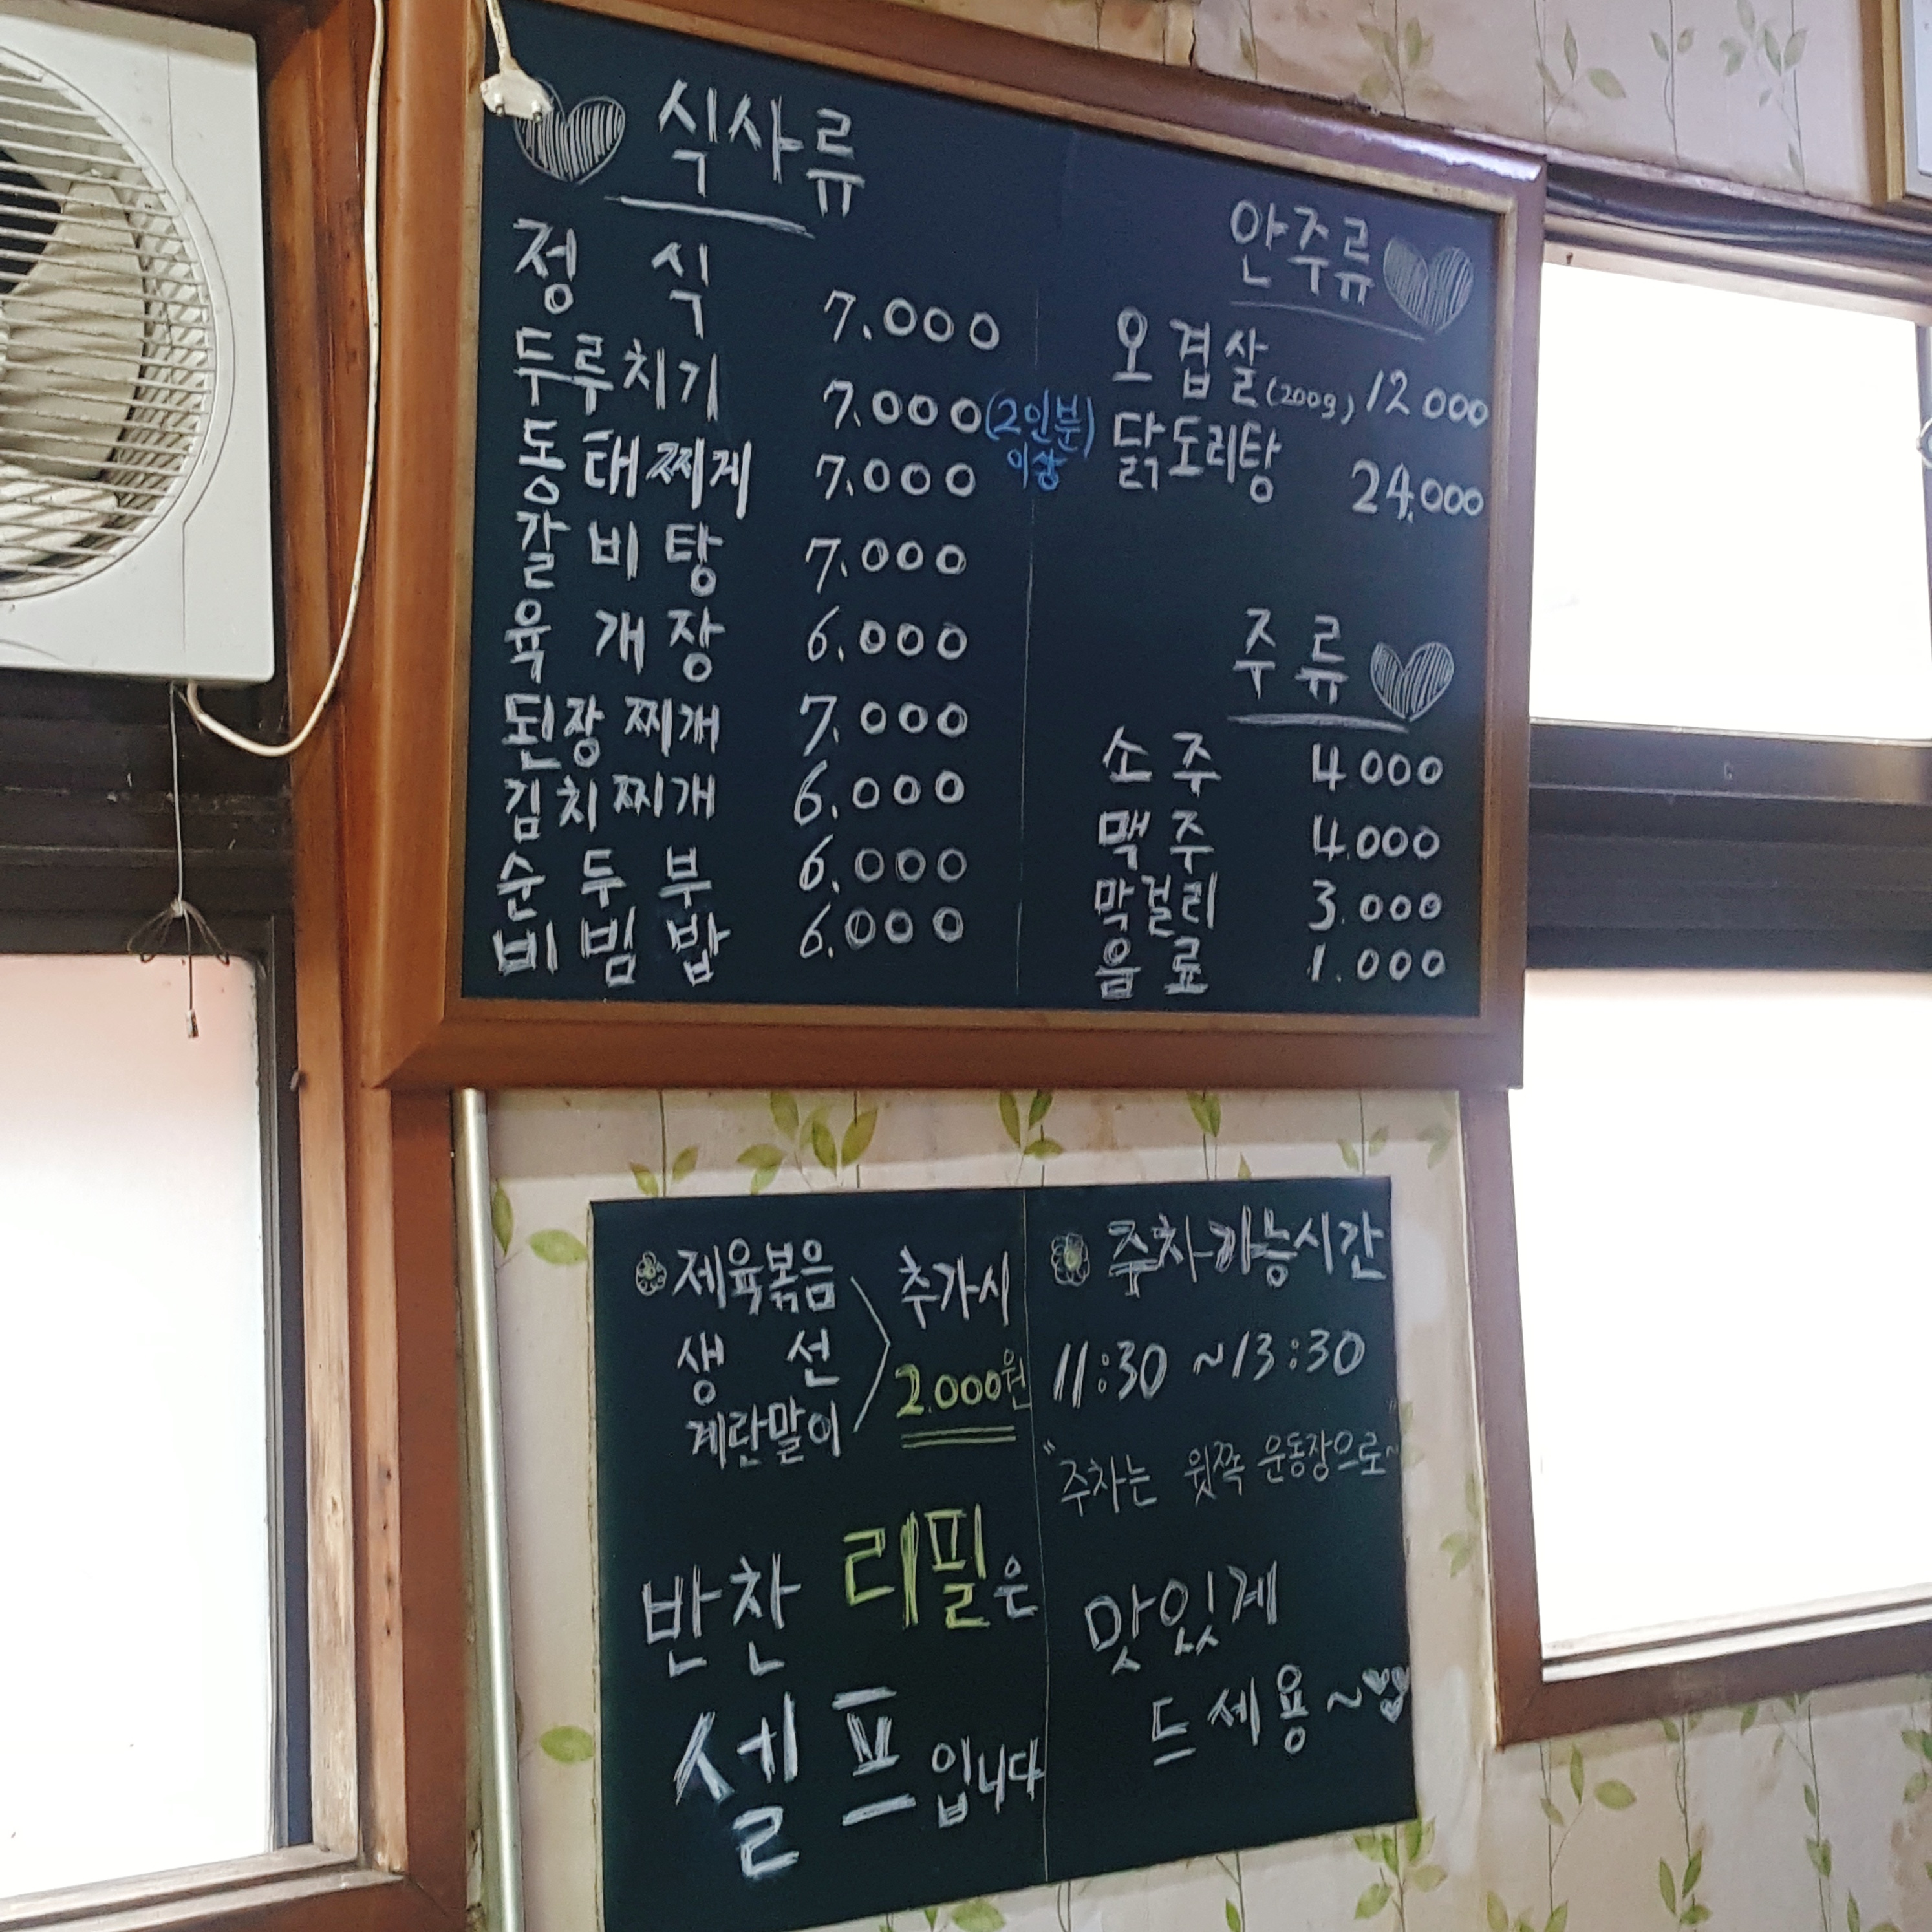 식사류
정 식 7.000
두루치기 7.000 (2인분)
이상
동태찌게 7.000
갈비탕 7.000
육개장 6.000
된장찌개 7.000
김치찌개 6.000
순두부 6.000
비빔밥 6.000
안주류
오겹살 (200g) 12000
닭도리탕 24.000
주류
소주 4000
맥주 4.000
막걸리 3.000
음료 1.000
제육볶음
생 선
계란말이
추가시
2.000원
반찬 리필은
셀프입니다
주차가능시간
11:30 ~ 13:30
"주차는 윗쪽 운동장으로~"
맛있게
드세용~